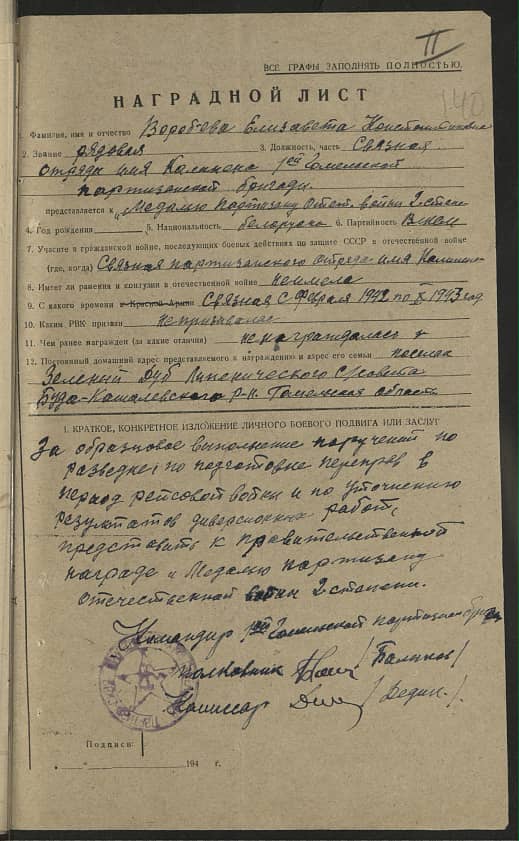 II
ВСЕ ГРАФЫ ЗАПОЛНЯТЬ ПОЛНОСТЬЮ.
140
НАГРАДНОЙ ЛИСТ
1. Фамилия, имя и отчество Воробьева Елизавета Константиновна
2. Звание рядовая 3. Должность, часть Связная
отряда имя Калинина 1ой Гомельской
партизанской бригады.
представляется к „Медалью Партизану Отеч. войны 2 степ.
4. Год рождения 5. Национальность белоруска 6. Партийность
7. Участие в гражданской войне, последующих боевых действиях по защите СССР в отечественной войне
(где, когда) Связная партизанского отряда имя Калинин
8. Имеет ли ранения и контузии в отечественной войне неимела
9. С какого времени в Красной Армии Связная с Февраля 1942 по X 1943 год
10. Каким РВК призван не призывалас
11. Чем ранее награжден (за какие отличия) ненаграждалась
12. Постоянный домашний адрес представляемого к награждению и адрес его семьи поселок
Зеленый Дуб Липеничского С/совета
Буда-Кошелевского р-н. Гомельская область
I. КРАТКОЕ, КОНКРЕТНОЕ ИЗЛОЖЕНИЕ ЛИЧНОГО БОЕВОГО ПОДВИГА ИЛИ ЗАСЛУГ
За образцовое выполнение поручений по
разведке, по подготовке переправ в
период рельсовой войны и по уточнению
результатов диверсионных работ,
представить к правительственной
награде „Медалью партизану
отечественной войны 2 степени.
Командир 1ой Гомельской партизан бриг
полковник /Балыков/
Комиссар /Дедик/.
Подписи:
„ “ 194 г.